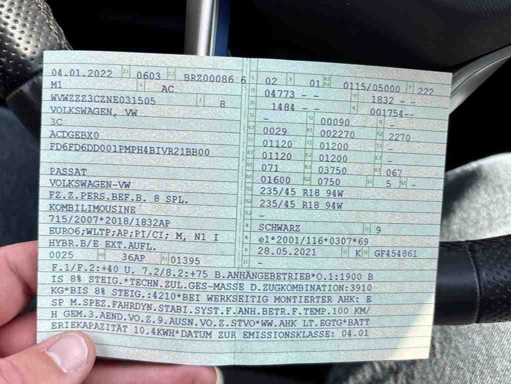 04.01.2022 0603 BRZ00086 6
M1 AC
WVWZZZ3CZNE031505 8
VOLKSWAGEN, VW
3C
ACDGEBX0
FD6FD6DD001PMPH4BIVR21BB00
PASSAT
VOLKSWAGEN-VW
FZ.Z.PERS.BEF.B. 8 SPL.
KOMBILIMOUSINE
715/2007*2018/1832AP
EURO6;WLTP;AP;PI/CI; M, N1 I
HYBR.B/E EXT.AUFL.
0025 36AP 01395
02 01 0115/05000 222
04773 - - 1832 - -
1484 - - 001754--
- 00090 - -
0029 002270 2270
01120 01200 - -
01120 01200 - -
071 03750 067
01600 0750 5 -
235/45 R18 94W
235/45 R18 94W
-
SCHWARZ 9
e1*2001/116*0307*69
28.05.2021 K GF454061
F.1/F.2:+40 U. 7.2/8.2:+75 B.ANHÄNGEBETRIEB*O.1:1900 B
IS 8% STEIG.*TECHN.ZUL.GES-MASSE D.ZUGKOMBINATION:3910
KG*BIS 8% STEIG.:4210*BEI WERKSEITIG MONTIERTER AHK: E
SP M.SPEZ.FAHRDYN.STABI.SYST.F.ANH.BETR.F.TEMP.100 KM/
H GEM.3.AEND.VO.Z.9.AUSN.VO.Z.STVO*WW.AHK LT.EGTG*BATT
ERIEKAPAZITÄT 10.4KWH*DATUM ZUR EMISSIONSKLASSE: 04.01